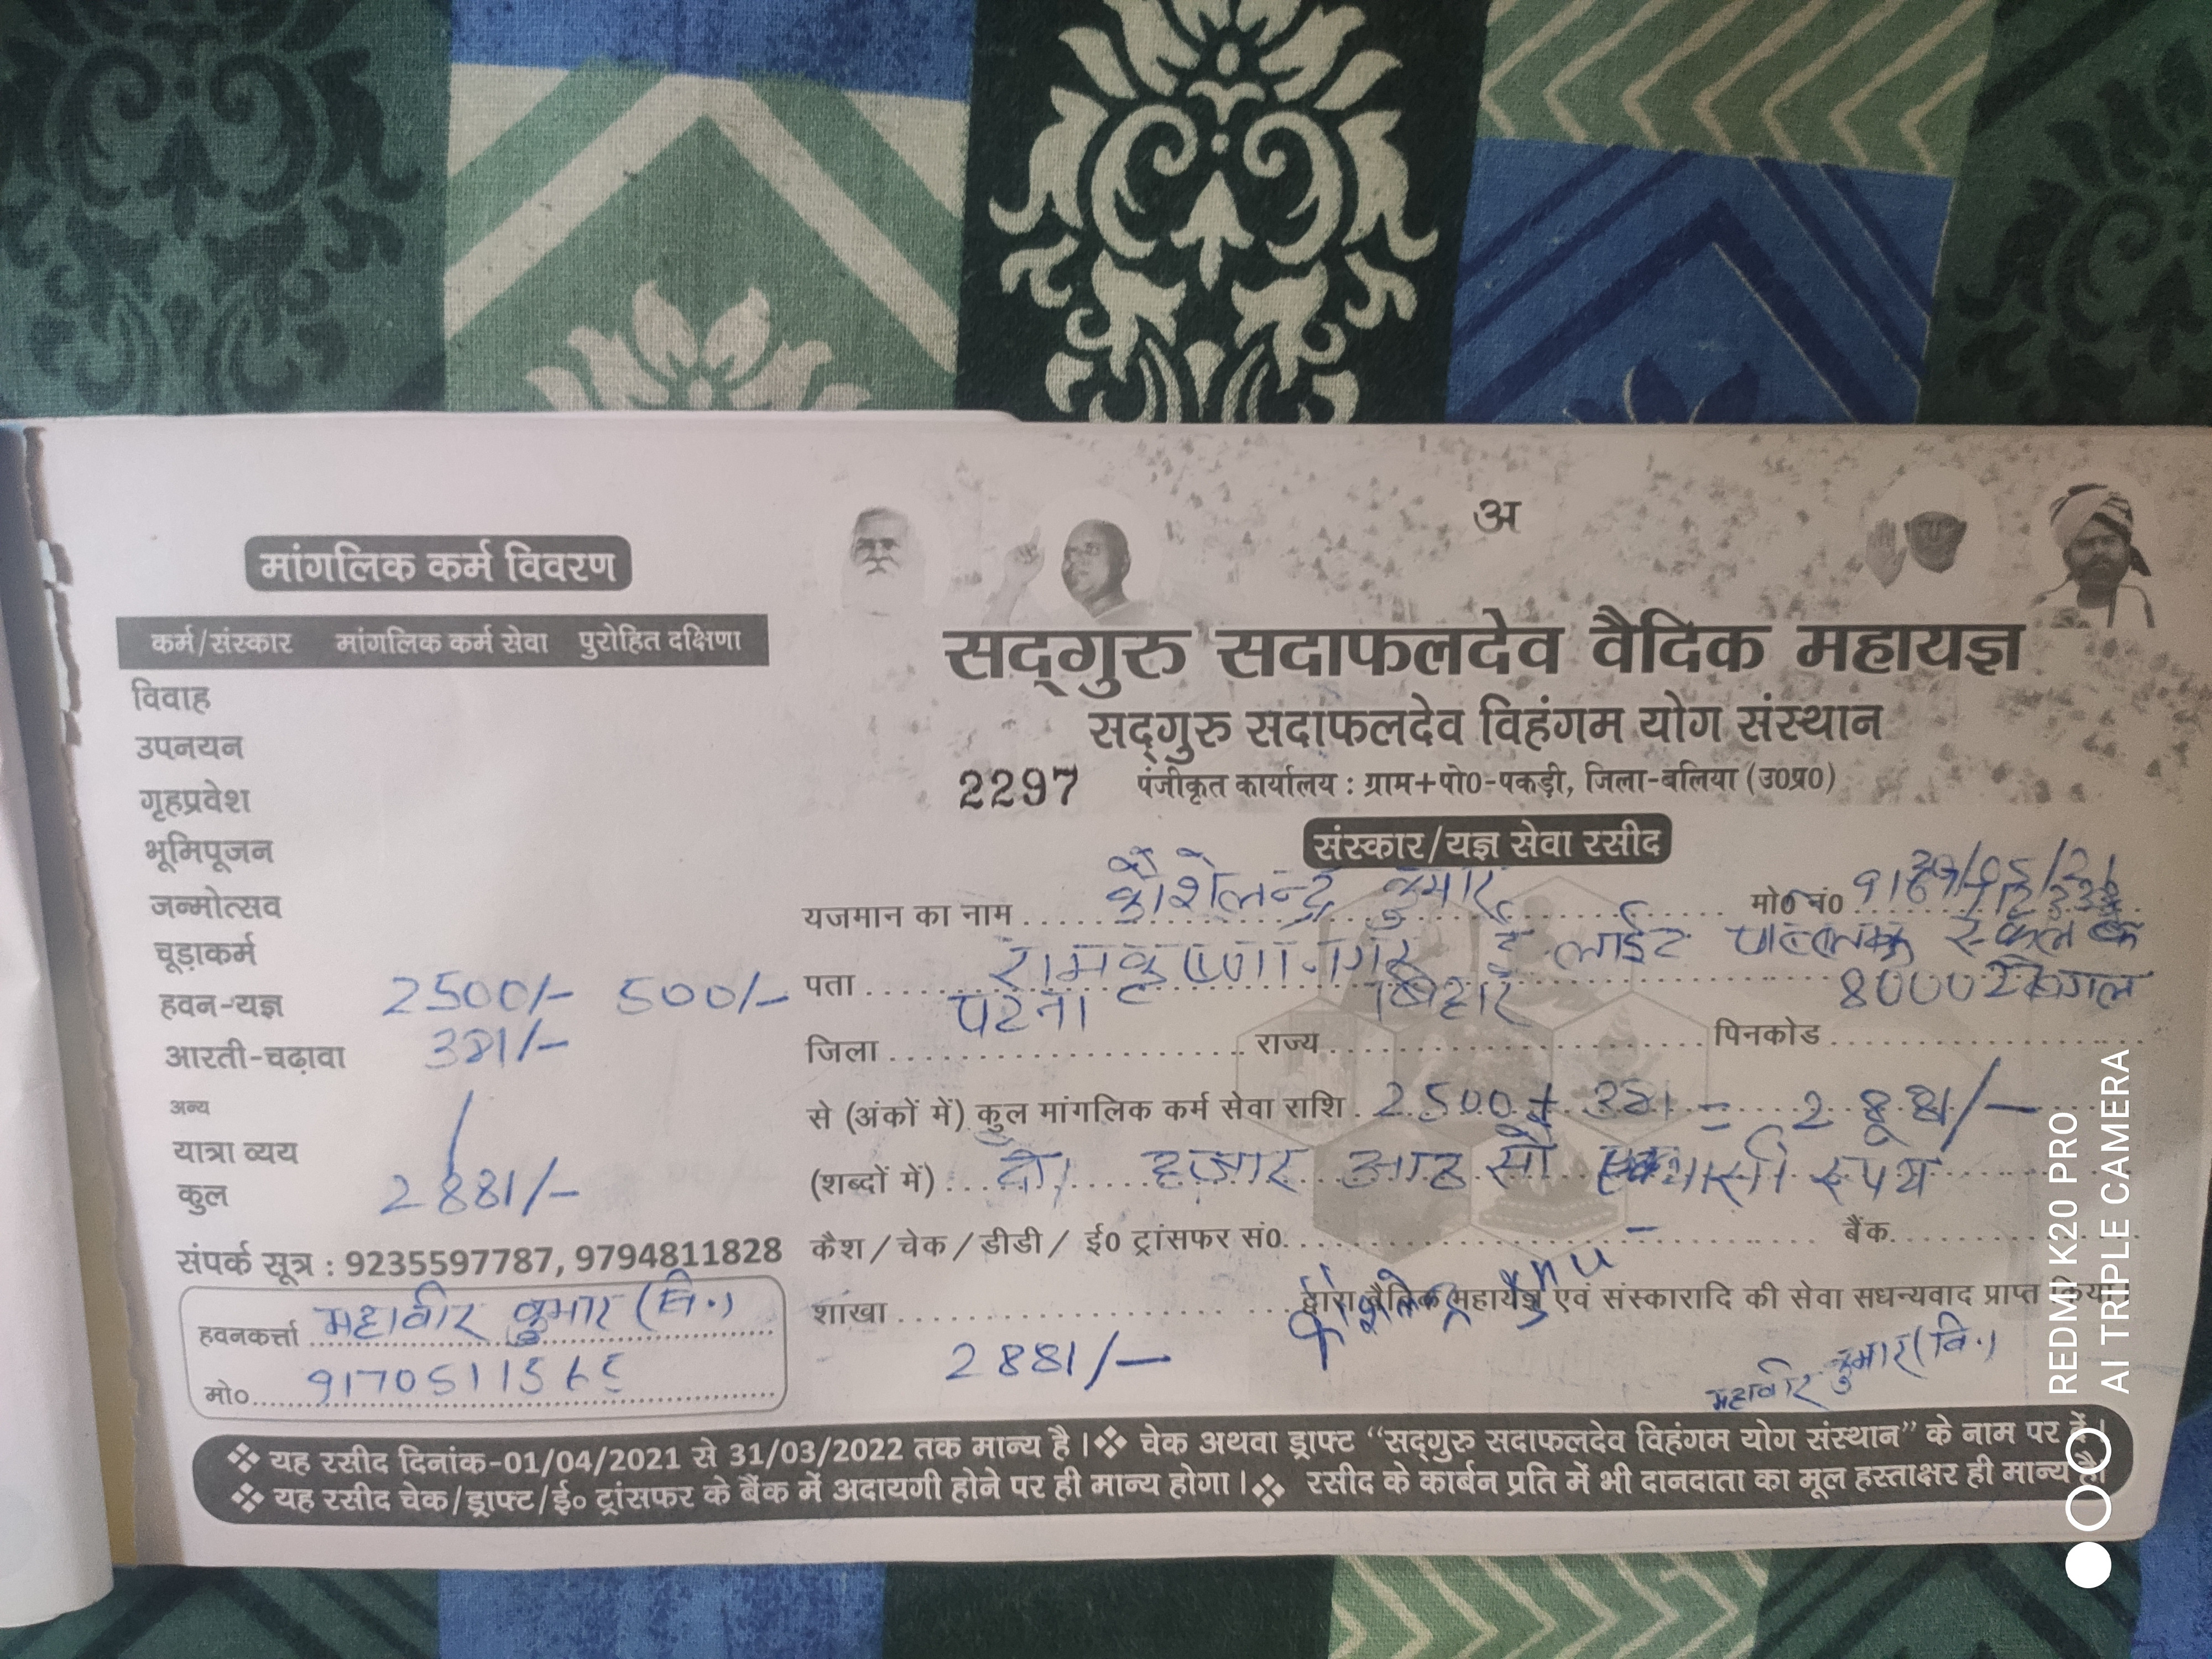 अ
मांगलिक कर्म विवरण
कर्म/संस्कार मांगलिक कर्म सेवा पुरोहित दक्षिणा
विवाह
उपनयन
गृहप्रवेश
भूमिपूजन
जन्मोत्सव
चूड़ाकर्म
हवन-यज्ञ 2500/- 500/-
आरती-चढ़ावा 381/-
अन्य
यात्रा व्यय
कुल 2881/-
संपर्क सूत्र : 9235597787, 9794811828
हवनकर्त्ता महावीर कुमार (वि.)
मो०
सद्गुरु सदाफलदेव वैदिक महायज्ञ
सद्गुरु सदाफलदेव विहंगम योग संस्थान
2297 पंजीकृत कार्यालय : ग्राम+पो0-पकड़ी, जिला-बलिया (उ0प्र0)
संस्कार/यज्ञ सेवा रसीद
यजमान का नाम कौशलेन्द्र कुमार मो0 नं0
पता रामकृष्णा नगर लाईट पब्लिक स्कूल के बगल
जिला पटना राज्य बिहार पिनकोड
से (अंकों में) कुल मांगलिक कर्म सेवा राशि 2500 + 381 = 2881/-
(शब्दों में) दो हजार आठ सौ रूपये
कैश / चेक / डीडी / ई0 ट्रांसफर सं0 - बैंक
शाखा द्वारा वैदिक महायज्ञ एवं संस्कारादि की सेवा सधन्यवाद प्राप्त किया
2881/- महावीर कुमार (वि.)
❖ यह रसीद दिनांक-01/04/2021 से 31/03/2022 तक मान्य है। ❖ चेक अथवा ड्राफ्ट “सद्गुरु सदाफलदेव विहंगम योग संस्थान” के नाम पर दें।
❖ यह रसीद चेक/ड्राफ्ट/ई० ट्रांसफर के बैंक में अदायगी होने पर ही मान्य होगा। ❖ रसीद के कार्बन प्रति में भी दानदाता का मूल हस्ताक्षर ही मान्य है।
REDMI K20 PRO
AI TRIPLE CAMERA